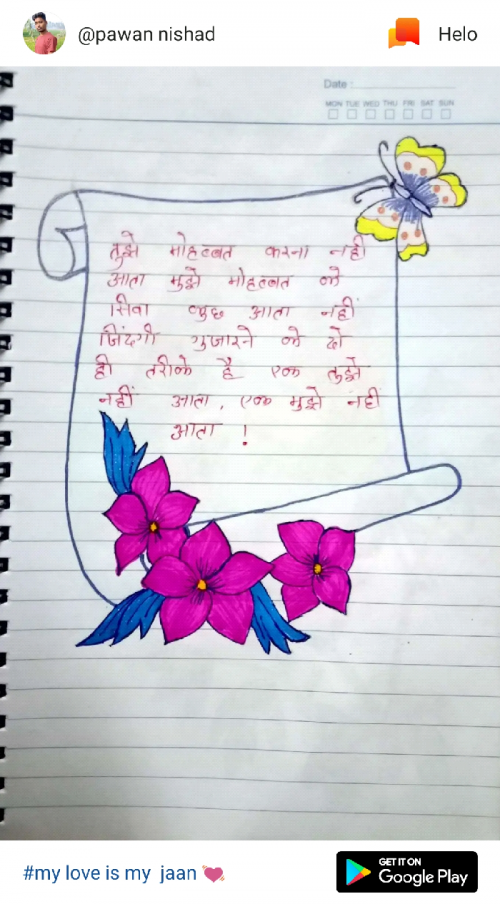 @pawan nishad
Helo
Date :
MON TUE WED THU FRI SAT SUN
तुझे मोहब्बत करना नहीं
आता मुझे मोहब्बत के
सिवा कुछ आता नहीं
जिंदगी गुजारने के दो
ही तरीके है एक तुझे
नहीं आता, एक मुझे नहीं
आता !
#my love is my jaan 💘
GET IT ON
Google Play